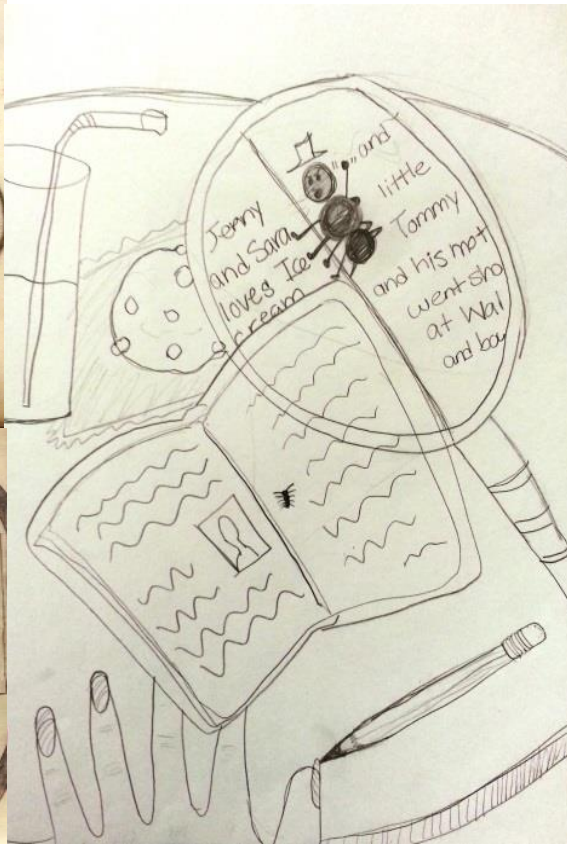 Jenny
and Sara
loves Ice
cream
and
little
Tommy
and his mot
went sho
at Wal
and bou